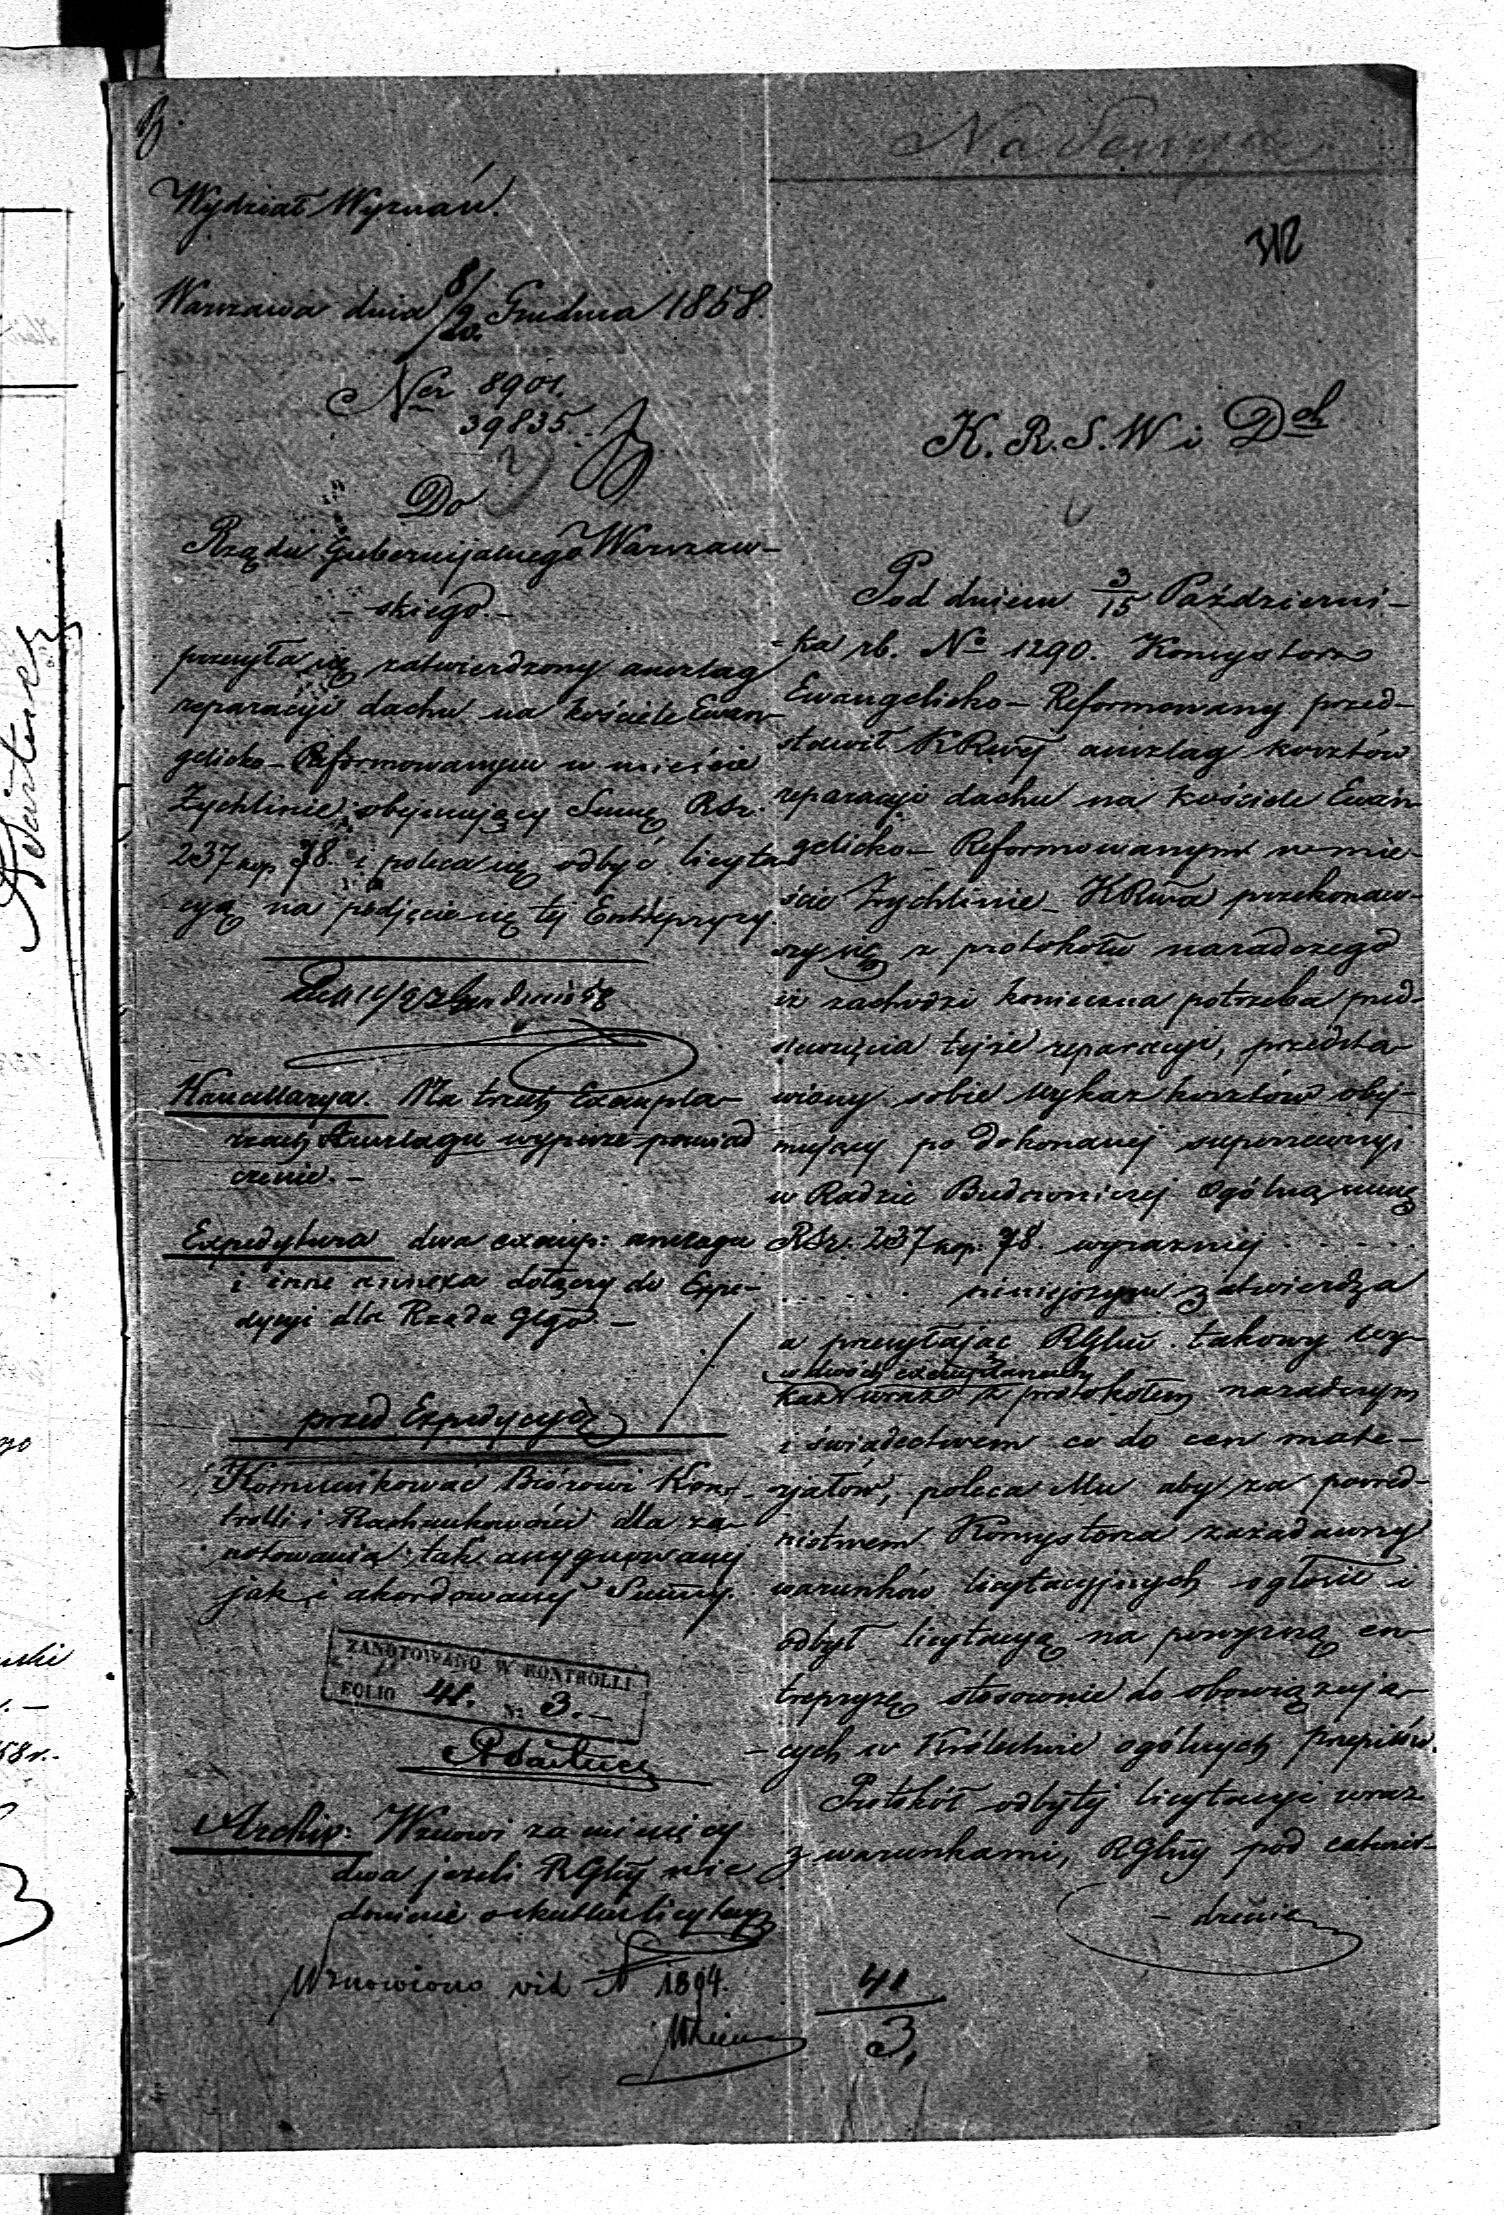 Wydział Wyznań.
Warszawa dnia 8/20 Grudnia 1858.
Ner 8901.
39835.
Do
Rządu Gubernijalnego Warszaw-
- skiego. -
przesyła się zatwierdzony anszlag
reparacyi dachu na kościele Ewan-
gelicko - Reformowanym w mieście
Żychlinie, obejmujący Summę RSr.
237 kop. 78. i poleca się odbyć licyta-
cyą na podjęcie się tej Entrepryzy.
Kancellarya. Na trzech Exempla-
rzach Anszlagu wypisze poświad
czenie. -
Expedytura dwa exemp: anszlagu
i inne annexa dołączy do Expe-
dycyi dla Rządu Glgo. -
przed Expedycyą
Kommunikować Biórowi Kon-
trolli i Rachunkowości dla za-
notowania tak assygnowanej
jak i akordowanej Summy.
ZANOTOWANO W KONTROLLI
FOLIO 41. N: 3. -
Archiv: Wznowi za miesięcy
dwa jeżeli RGlny nie
doniesie o skutku licytacyi
Wznowiono vid N 1894.
K. R. S. W i Dch
Pod dniem 3/15 Październi-
- ka rb. No 1290. Konsystorz
Ewangelicko - Reformowany przed-
stawił KRwej anszlag kosztów
reparacyi dachu na kościele Ewan-
gelicko - Reformowanym w mie-
ście Żychlinie - KRwa przekonaw-
szy się z protokołu naradczego
iż zachodzi konieczna potrzeba przed-
sięwzięcia tejże reparacyi, przedsta-
wiony sobie wykaz kosztów obej-
mujący po dokonanej superrewizyi
w Radzie Budowniczej ogólną summę
RSr. 237 kop. 78. wyraźniej . . . .
. . . . . niniejszym zatwierdza
a przesyłając RGlmu takowy wy-
w dwóch exemplarzach
kaz wraz z protokołem naradczym
i świadectwem co do cen mate-
ryałów, poleca Mu aby za pośred-
nictwem Konsystorza zażądawszy
warunków licytacyjnych ogłosił i
odbył licytacyą na powyższą en-
trepryzę stosownie do obowiązują-
- cych w Królestwie ogólnych przepisów.
Protokół odbytej licytacyi wraz
z warunkami, RGlny pod zatwier-
- dzenie
41
3.